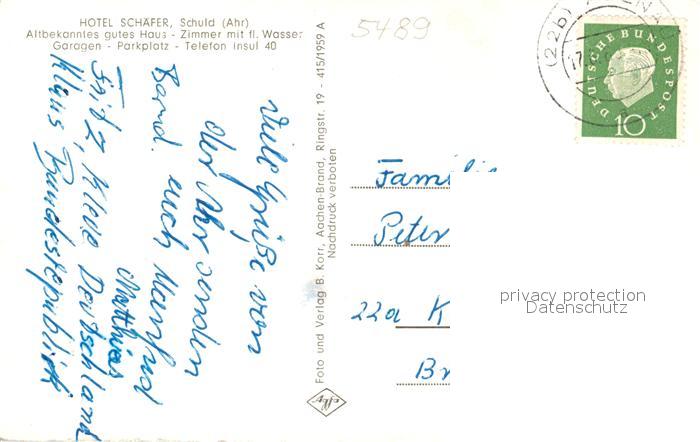 HOTEL SCHÄFER, Schuld (Ahr)
Altbekanntes gutes Haus - Zimmer mit fl. Wasser
Garagen - Parkplatz - Telefon Insul 40
5489
Viele Grüße von
der Ahr senden
Bernd. euch Manfred
Matthias
Fritz, Kleve Deutschland
Klaus Bundesrepublik
Foto und Verlag B. Korr, Aachen-Brand, Ringstr. 19 - 415/1959 A
Nachdruck verboten
Agfa
(22b)
17.
DEUTSCHE BUNDESPOST
10
Famili
Peter
22a K
Br
privacy protection
Datenschutz